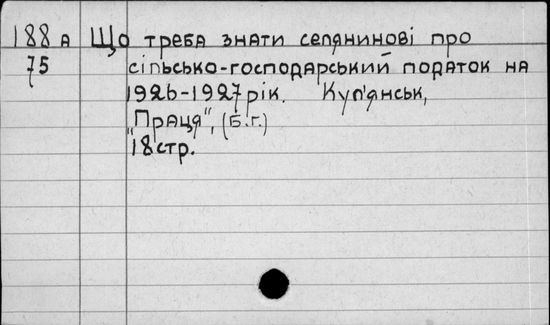 188 А Що треба знати селянинові про
75 сільсько-господарський податок на
1926-1927 рік. Куп'янськ,
„Праця", (Б.г.)
18 стр.